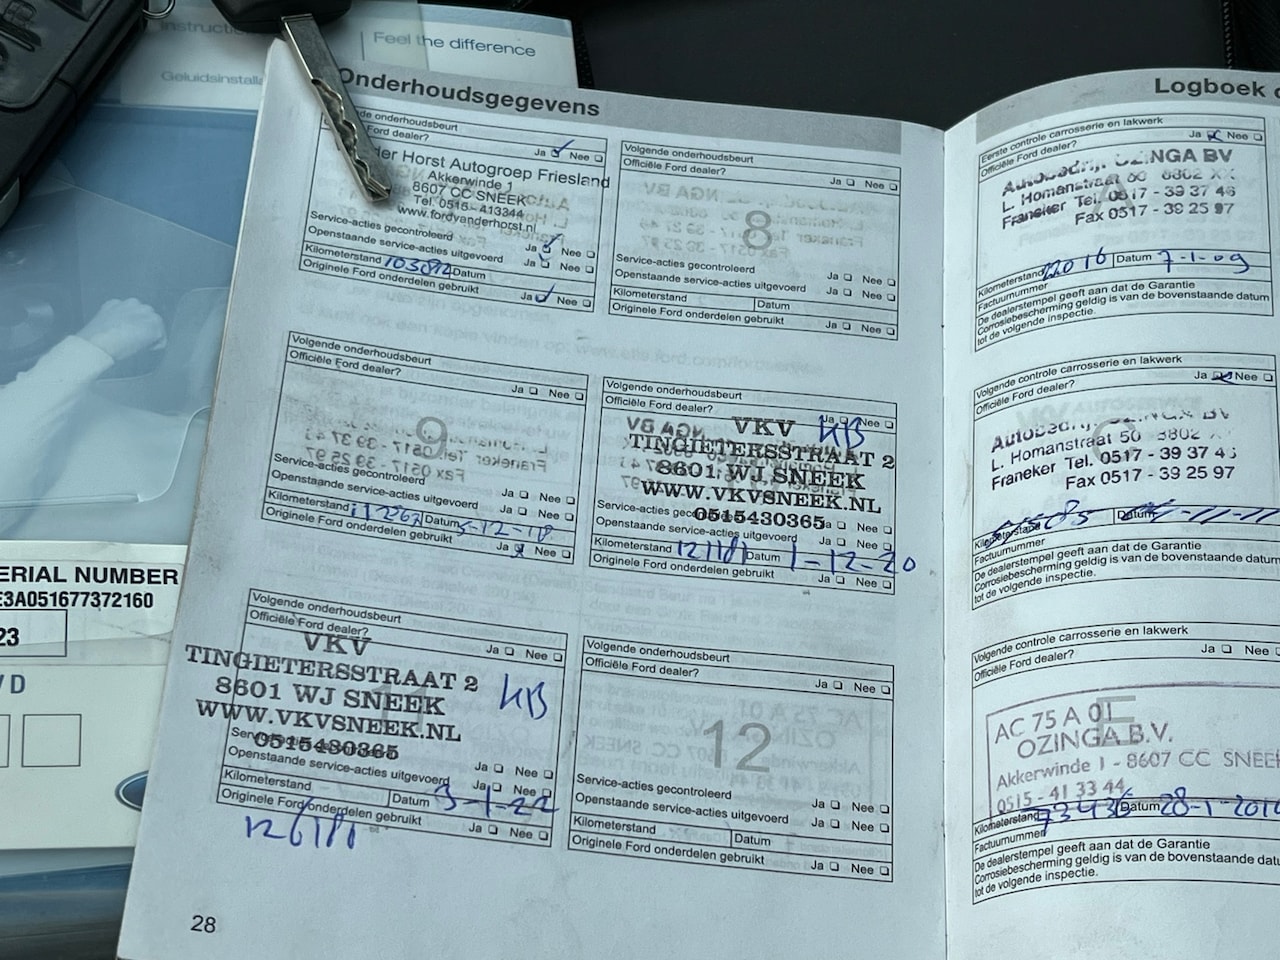 Feel the difference
Onderhoudsgegevens
de onderhoudsbeurt
Ford dealer?
Ja Nee
der Horst Autogroep Friesland
Akkerwinde 1
8607 CC SNEEK
Tel. 0515 - 413344
www.fordvanderhorst.nl
Service-acties gecontroleerd
Ja Nee
Openstaande service-acties uitgevoerd
Ja Nee
Kilometerstand Datum
Originele Ford onderdelen gebruikt Ja Nee
Volgende onderhoudsbeurt
Officiële Ford dealer?
Ja Nee
8
Service-acties gecontroleerd Ja Nee
Openstaande service-acties uitgevoerd Ja Nee
Kilometerstand Datum
Originele Ford onderdelen gebruikt Ja Nee
Volgende onderhoudsbeurt
Officiële Ford dealer?
Ja Nee
9
Service-acties gecontroleerd Ja Nee
Openstaande service-acties uitgevoerd Ja Nee
Kilometerstand Datum 5-12-18
Originele Ford onderdelen gebruikt Ja Nee
Volgende onderhoudsbeurt
Officiële Ford dealer?
Ja Nee
VKV
TINGIETERSSTRAAT 2
8601 WJ SNEEK
WWW.VKVSNEEK.NL
0515430365
Service-acties gecontroleerd Ja Nee
Openstaande service-acties uitgevoerd Ja Nee
Kilometerstand 121181 Datum 1-12-20
Originele Ford onderdelen gebruikt Ja Nee
Volgende onderhoudsbeurt
Officiële Ford dealer?
Ja Nee
VKV
TINGIETERSSTRAAT 2
8601 WJ SNEEK
WWW.VKVSNEEK.NL
0515430365
11
Ja Nee
Openstaande service-acties uitgevoerd Ja Nee
Kilometerstand Datum 3-1-22
Originele Ford onderdelen gebruikt Ja Nee
126181
Volgende onderhoudsbeurt
Officiële Ford dealer?
Ja Nee
12
Service-acties gecontroleerd Ja Nee
Openstaande service-acties uitgevoerd Ja Nee
Kilometerstand Datum
Originele Ford onderdelen gebruikt Ja Nee
28
Logboek
Eerste controle carrosserie en lakwerk
Officiële Ford dealer? Ja Nee
Autobedrijf OZINGA BV
L. Homanstraat 50 8802
Franeker Tel. 0517 - 39 37 43
Fax 0517 - 39 25 97
Kilometerstand 22016 Datum 7-1-09
Factuurnummer
De dealerstempel geeft aan dat de Garantie
Corrosiebescherming geldig is van de bovenstaande datum
tot de volgende inspectie.
Volgende controle carrosserie en lakwerk
Officiële Ford dealer? Ja Nee
Autobedrijf OZINGA BV
L. Homanstraat 50 8802
Franeker Tel. 0517 - 39 37 43
Fax 0517 - 39 25 97
Kilometerstand Datum
Factuurnummer
De dealerstempel geeft aan dat de Garantie
Corrosiebescherming geldig is van de bovenstaande
tot de volgende inspectie.
Volgende controle carrosserie en lakwerk
Officiële Ford dealer? Ja Nee
AC 75 A 01
OZINGA B.V.
Akkerwinde 1 - 8607 CC SNEEK
0515 - 41 33 44
E
Kilometerstand 73436 Datum 28-1-201
Factuurnummer
De dealerstempel geeft aan dat de Garantie
Corrosiebescherming geldig is van de bovenstaande
tot de volgende inspectie.
ERIAL NUMBER
E3A051677372160
23